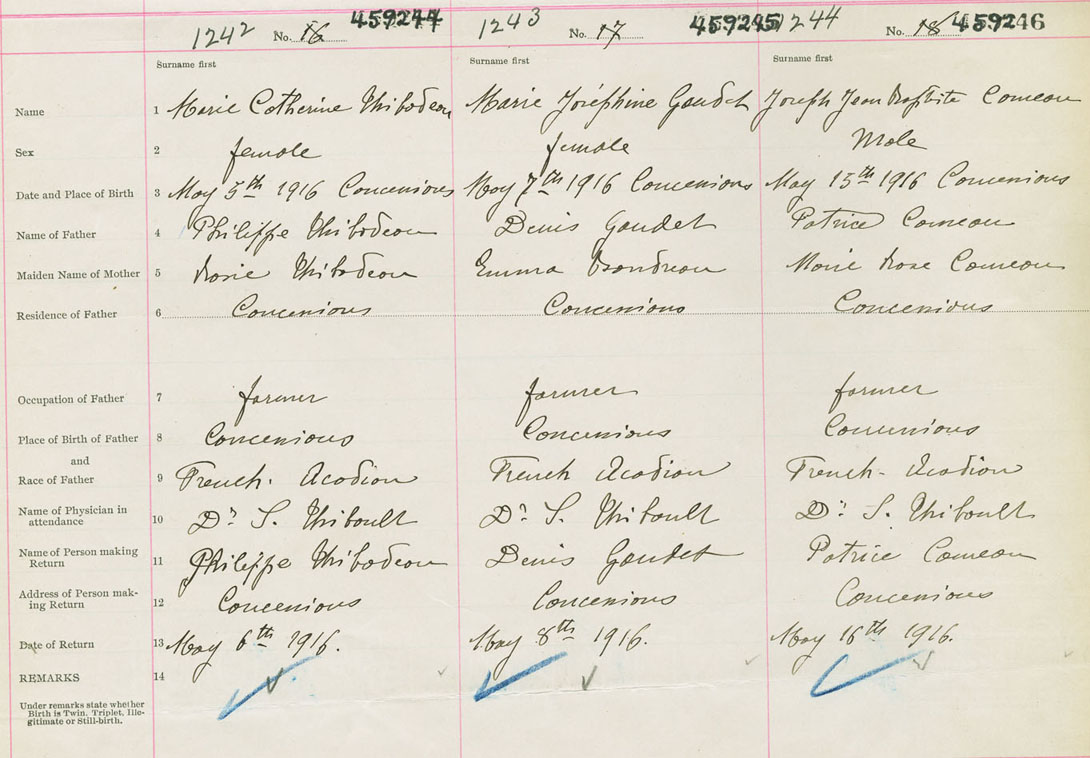 1242 No. 16 459244 1243 No. 17 459245 1244 No. 18 459246
Surname first Surname first Surname first
Name 1 Marie Catherine Thibodeau Marie Joséphine Gaudet Joseph Jean Baptiste Comeau
Sex 2 female female Male
Date and Place of Birth 3 May 5th 1916 Concessions May 7th 1916 Concessions May 15th 1916 Concessions
Name of Father 4 Philippe Thibodeau Denis Gaudet Patrice Comeau
Maiden Name of Mother 5 Rosie Thibodeau Emma Marie Rose Comeau
Residence of Father 6 Concessions Concessions Concessions
Occupation of Father 7 farmer farmer farmer
Place of Birth of Father 8 Concessions Concessions Concessions
and
Race of Father 9 French. Acadian French Acadian French-Acadian
Name of Physician in
attendance 10 Dr S. Thibault Dr S. Thibault Dr S. Thibault
Name of Person making
Return 11 Philippe Thibodeau Denis Gaudet Patrice Comeau
Address of Person mak-
ing Return 12 Concessions Concessions Concessions
Date of Return 13 May 6th 1916. May 8th 1916. May 16th 1916.
REMARKS 14
Under remarks state whether
Birth is Twin, Triplet, Ille-
gitimate or Still-birth.